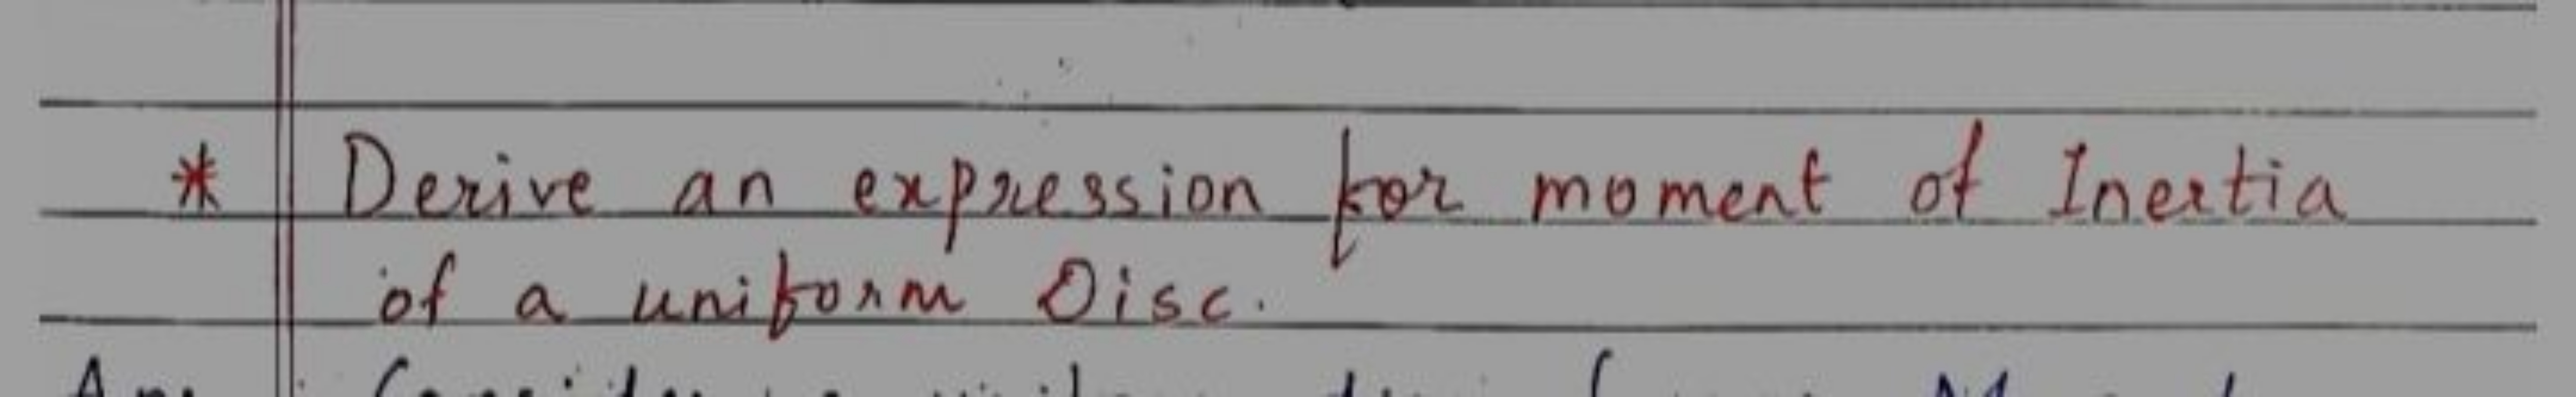 * Derive an expression for moment of Inertia
of a uniform Disc.